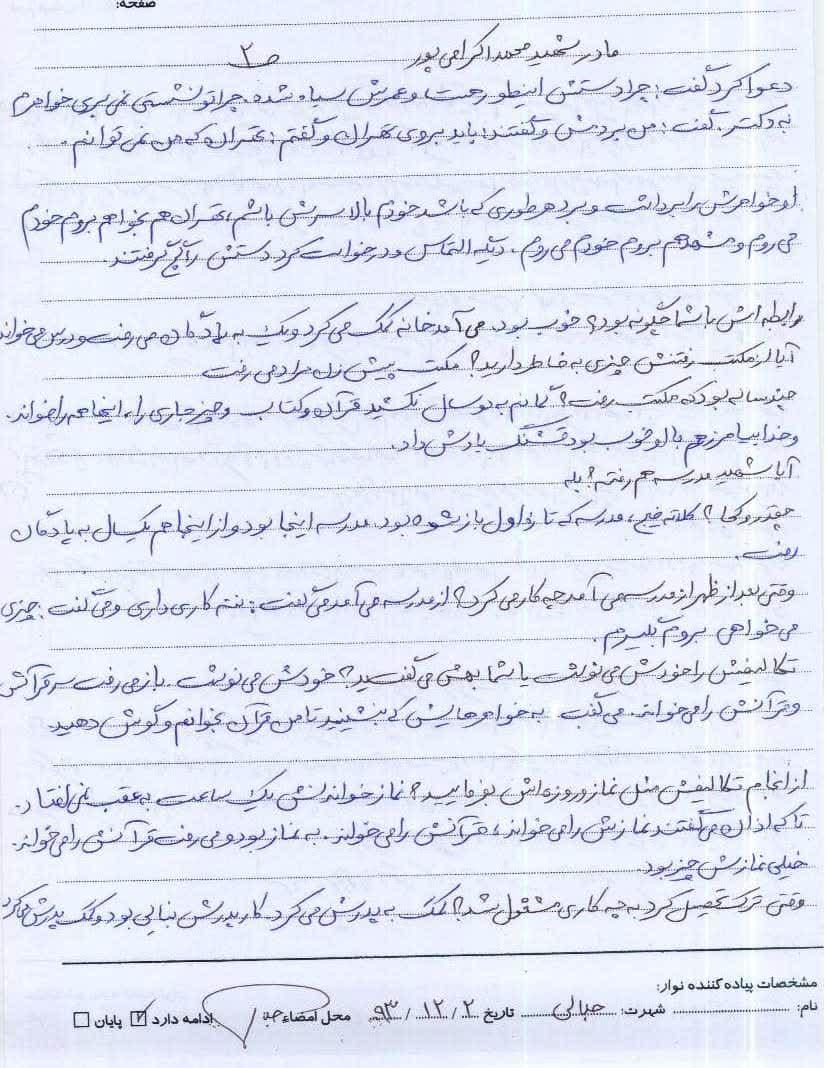 صفحه:
مادر شهید محمد اکرامی پور ص ۲
دعوا کرد گفت: چرا دستش اینطور رحت و عمرش سیاه شده. چرا تو نشستی نمی بری خواهرم
به دکتر. گفت: من بردمش و گفتند: باید بروی تهران و گفتم: تهران که من نمی توانم.
او خواهرش را برداشت و برد هر طوری که باشد خودم بالا سرش باشم، تهران هم بخواهم بروم خودم
می روم و مشهد هم بروم خودم می روم. دیگه التماس و درخواست کرد. دستش را گچ گرفتند.
رابطه اش با شما چگونه بود؟ خوب بود. می آمد خانه کمک می کرد و یک به یادگان می رفت و درس می خواند
آیا از مکتب رفتنش چیزی به خاطر دارید؟ مکتب پیش زن مراد می رفت
چند ساله بود که مکتب رفت؟ گمانم به دو سال نکشید قرآن و کتاب و چیز جاری را، اینها همه را خواند.
و خدا بیامرز هم با او خوب بود قشنگ یادش داد.
آیا شهید مدرسه هم رفته؟ بله
چقدر و کجا؟ کلاته میج، مدرسه که تازه اول باز شده بود. مدرسه اینجا بود و از اینجا هم یکسال به یادگان
رفت.
وقتی بعد از ظهر از مدرسه می آمد چه کار می کرد؟ از مدرسه می آمد می گفت: ننه کاری داری و می گفت: چیزی
می خواهی بروم بگیرم.
تکالیفش را خودش می نوشت یا شما بهش می گفتید؟ خودش می نوشت. باز می رفت سر قرآنش
و قرآنش را می خواند. می گفت به خواهرهایش که بنشینید تا من قرآن بخوانم و گوش دهید.
از انجام تکالیفش مثل نماز و روزه اش بفرمایید؟ نماز خواندنش یک ساعت به عقب نمی افتاد.
تا که اذان می گفتند نمازش را می خواند، قرآنش را می خواند. به نماز بود و می رفت قرآنش را می خواند.
خیلی نمازش چیز بود.
وقتی ترک تحصیل کرد به چه کاری مشغول شد؟ کمک به پدرش می کرد. کار پدرش بنایی بود و کمک پدرش می کرد
مشخصات پیاده کننده نوار:
نام: شهرت: جبالی تاریخ ۲ / ۱۲ / ۹۳ محل امضاء ادامه دارد ☑ پایان ☐